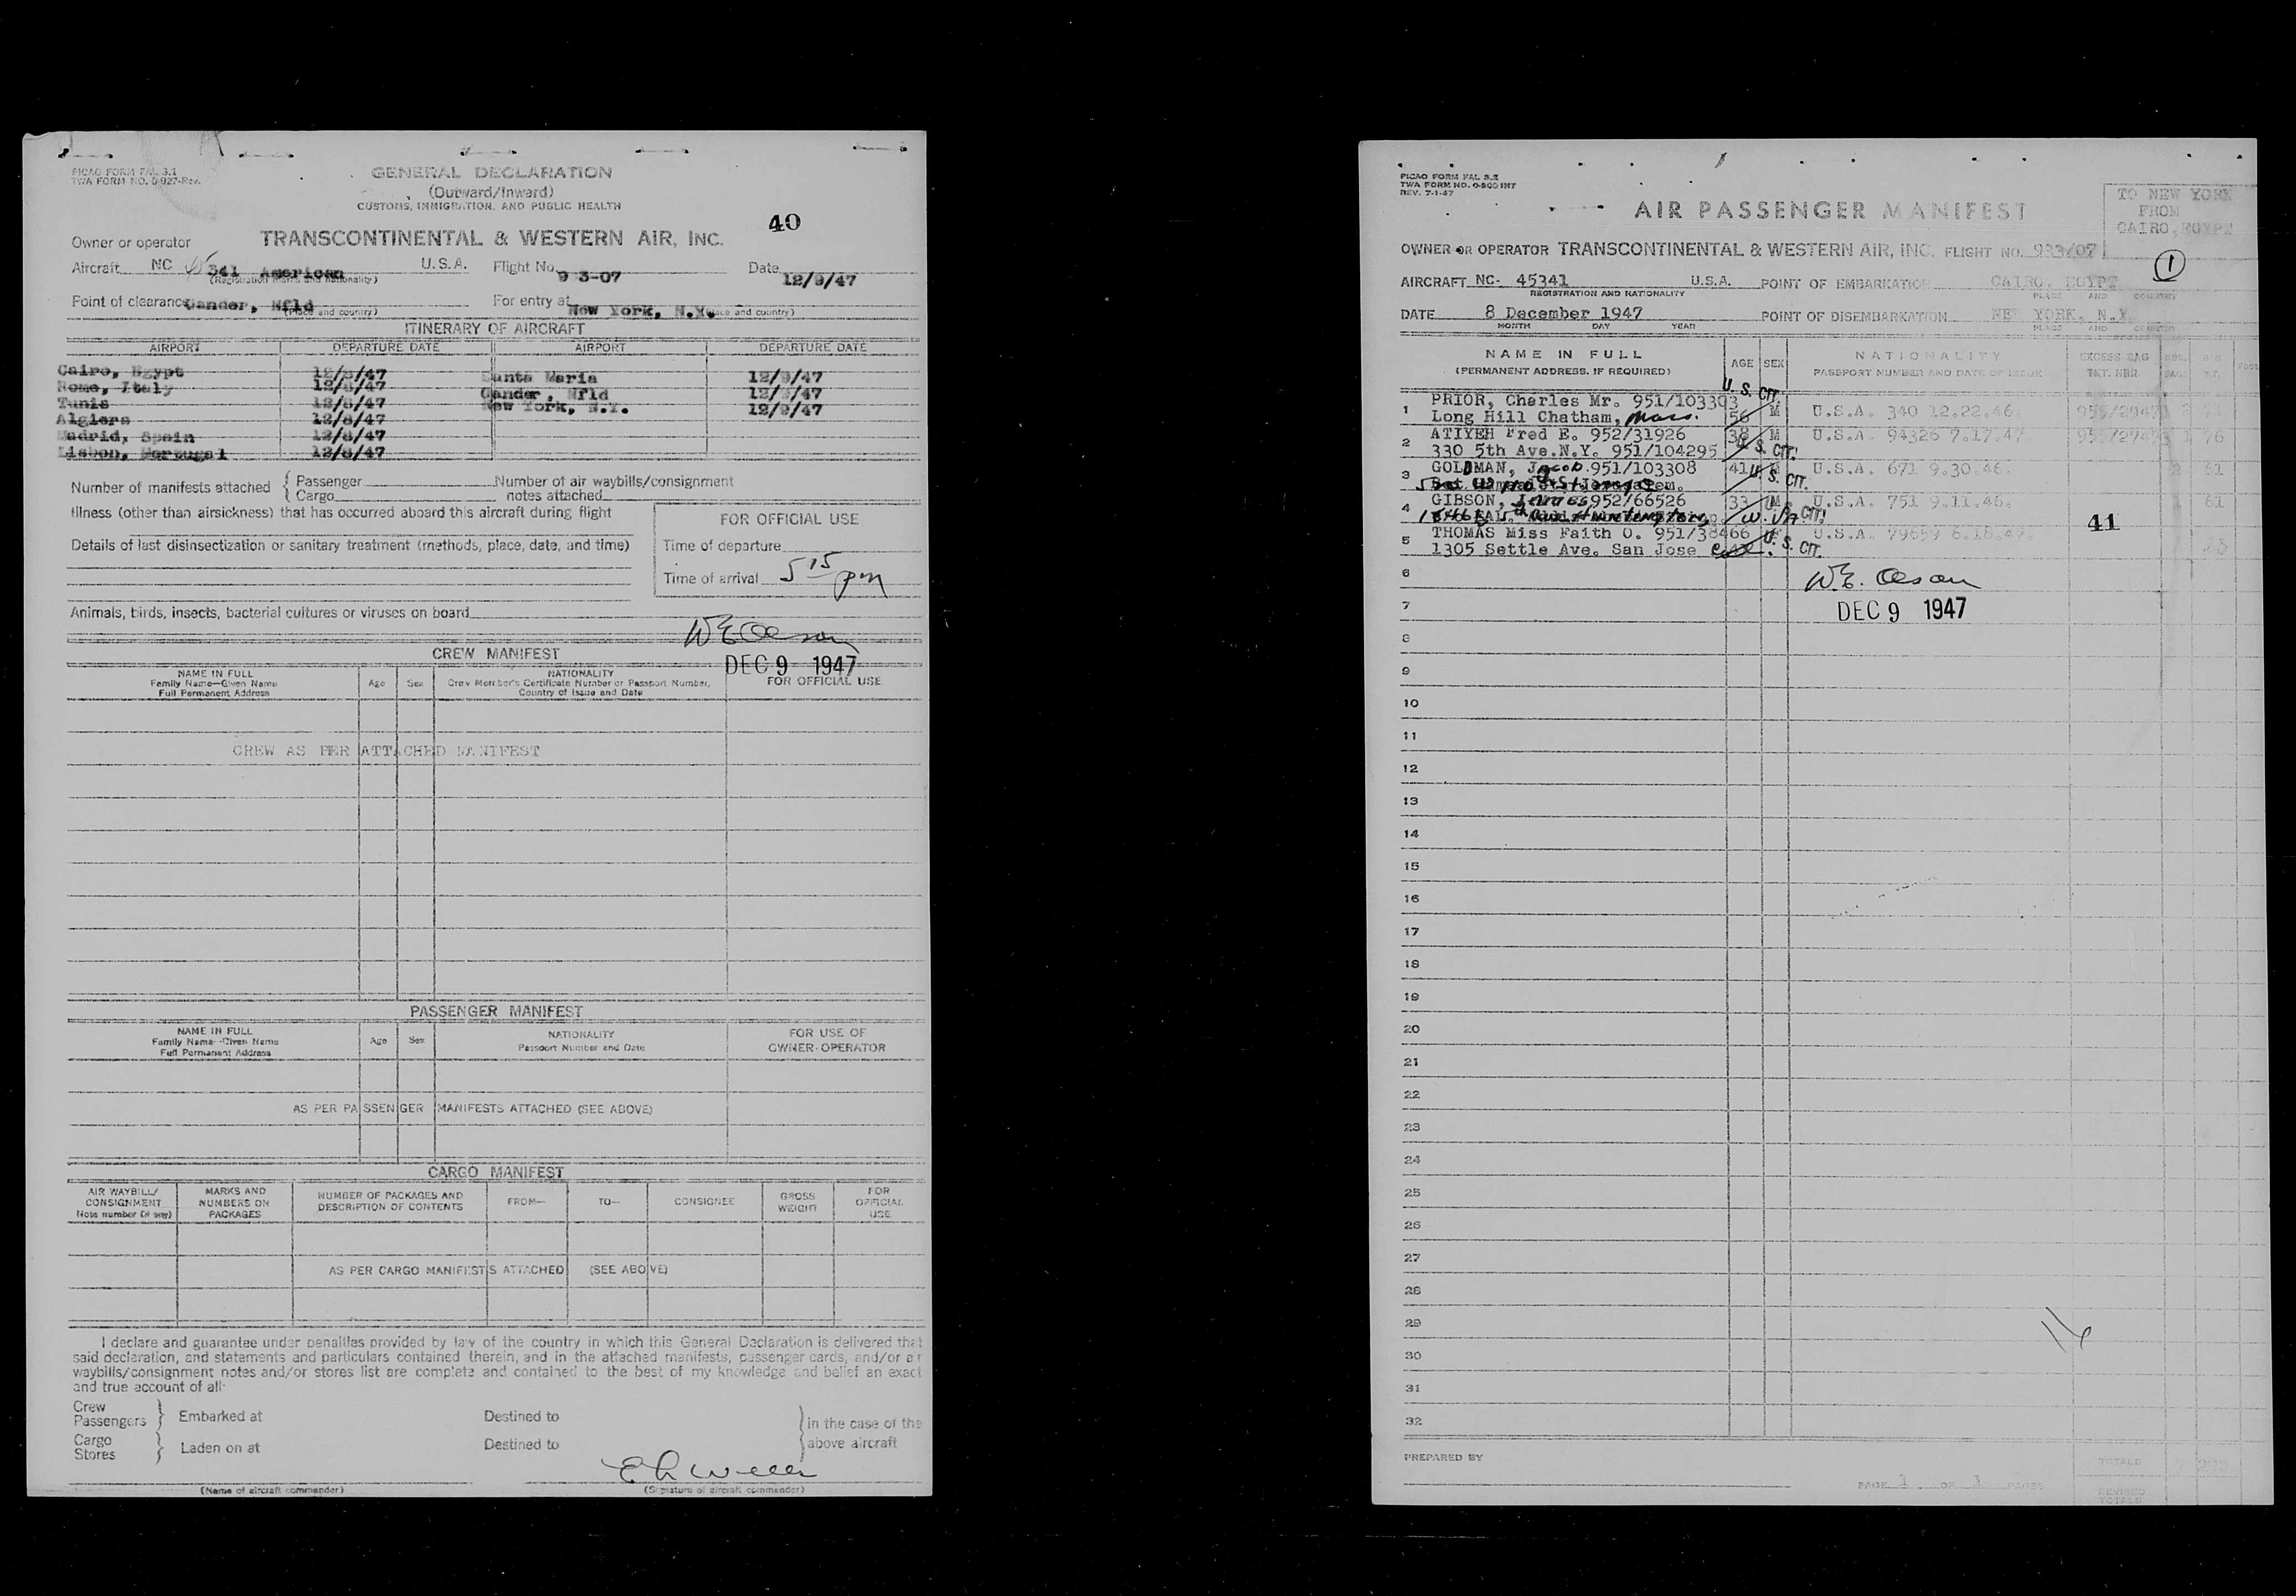 PICAO FORM FAL 3.1
TWA FORM NO. 0-927-Rev.
GENERAL DECLARATION
(Outward/Inward)
CUSTOMS, IMMIGRATION, AND PUBLIC HEALTH
40
Owner or operator TRANSCONTINENTAL & WESTERN AIR, INC.
Aircraft NC 45341 American U.S.A. Flight No. 9 3-07 Date 12/9/47
(Registration marks and nationality)
Point of clearance Gander, Nfld For entry at New York, N.Y.
(Place and country) (Place and country)
ITINERARY OF AIRCRAFT
AIRPORT DEPARTURE DATE AIRPORT DEPARTURE DATE
Cairo, Egypt 12/8/47 Santa Maria 12/9/47
Rome, Italy 12/8/47 Gander, Nfld 12/9/47
Tunis 12/8/47 New York, N.Y. 12/9/47
Algiers 12/8/47
Madrid, Spain 12/8/47
Lisbon, Portugal 12/8/47
Number of manifests attached { Passenger Number of air waybills/consignment
Cargo notes attached
Illness (other than airsickness) that has occurred aboard this aircraft during flight
FOR OFFICIAL USE
Details of last disinsectization or sanitary treatment (methods, place, date, and time)
Time of departure
Time of arrival 5 15 pm
Animals, birds, insects, bacterial cultures or viruses on board
W E Olson
CREW MANIFEST
DEC 9 1947
NAME IN FULL
Family Name—Given Name
Full Permanent Address
Age Sex
NATIONALITY
Crew Member's Certificate Number or Passport Number,
Country of Issue and Date
FOR OFFICIAL USE
CREW AS PER ATTACHED MANIFEST
PASSENGER MANIFEST
NAME IN FULL
Family Name—Given Name
Full Permanent Address
Age Sex
NATIONALITY
Passport Number and Date
FOR USE OF
OWNER-OPERATOR
AS PER PASSENGER MANIFESTS ATTACHED (SEE ABOVE)
CARGO MANIFEST
AIR WAYBILL/
CONSIGNMENT
(Note number (if any)
MARKS AND
NUMBERS ON
PACKAGES
NUMBER OF PACKAGES AND
DESCRIPTION OF CONTENTS
FROM— TO— CONSIGNEE
GROSS
WEIGHT
FOR
OFFICIAL
USE
AS PER CARGO MANIFESTS ATTACHED (SEE ABOVE)
I declare and guarantee under penalties provided by law of the country in which this General Declaration is delivered that
said declaration, and statements and particulars contained therein, and in the attached manifests, passenger cards, and/or air
waybills/consignment notes and/or stores list are complete and contained to the best of my knowledge and belief an exact
and true account of all:
Crew
Passengers } Embarked at Destined to } in the case of the
Cargo
Stores } Laden on at Destined to above aircraft
(Name of aircraft commander) (Signature of aircraft commander)
PICAO FORM FAL 3.2
TWA FORM NO. 0-800 INT
REV. 7-1-47
AIR PASSENGER MANIFEST
TO NEW YORK
FROM
CAIRO, EGYPT
OWNER OR OPERATOR TRANSCONTINENTAL & WESTERN AIR, INC. FLIGHT NO. 933/07
1
AIRCRAFT NC- 45341 U.S.A. POINT OF EMBARKATION CAIRO, EGYPT
REGISTRATION AND NATIONALITY PLACE AND COUNTRY
DATE 8 December 1947 POINT OF DISEMBARKATION NEW YORK, N.Y.
MONTH DAY YEAR PLACE AND COUNTRY
NAME IN FULL
(PERMANENT ADDRESS, IF REQUIRED)
AGE SEX
NATIONALITY
PASSPORT NUMBER AND DATE OF ISSUE
EXCESS BAG
TKT. NBR.
U. S. CIT.
1 PRIOR, Charles Mr. 951/103393 56 M U.S.A. 340 12.22.46.
Long Hill Chatham, Mass.
2 ATIYEH Fred E. 952/31926 38 M U.S.A. 94326 7.17.47 76
330 5th Ave.N.Y. 951/104295 U. S. CIT.
3 GOLDMAN, Jacob 951/103308 41 M U.S.A. 671 9.30.46. 61
U. S. CIT.
4 GIBSON, James 952/66526 33 M U.S.A. 751 9.11.46. 61
U. S. CIT.
41
5 THOMAS Miss Faith O. 951/38466 U.S.A. 79659 6.18.47.
1305 Settle Ave. San Jose Cal. U. S. CIT.
6
W.E. Olson
7
DEC 9 1947
8
9
10
11
12
13
14
15
16
17
18
19
20
21
22
23
24
25
26
27
28
29
30
31
32
PREPARED BY
TOTALS
PAGE 1 OF 1 PAGES
REVISED
TOTALS